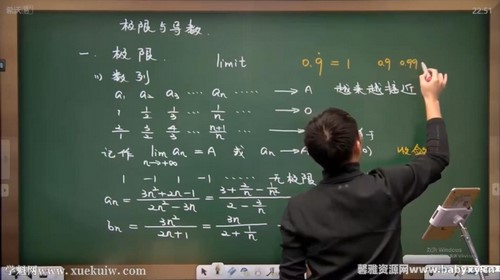 新沃
22:51
极限与导数
一. 极限. limit 0.9̇ = 1 0.9 0.99
(1) 数列
a₁ a₂ a₃ ···· aₙ ···· → A 越来越接近
1 1/2 1/3 ···· 1/n ···· → 0
2/1 3/2 4/3 ···· (n+1)/n ···· → 于
记作 lim n→+∞ aₙ = A 或 aₙ → A
1 -1 1 -1 ······ 无极限
aₙ = (3n²+2n-1)/(2n²-3n) = (3+2/n-1/n²)/(2-3/n)
bₙ = 3n²/(2n+1) = 3n/(2+1/n)
学魁网 www.xuekuiw.com
馨雅资源网 www.babyxy.cn